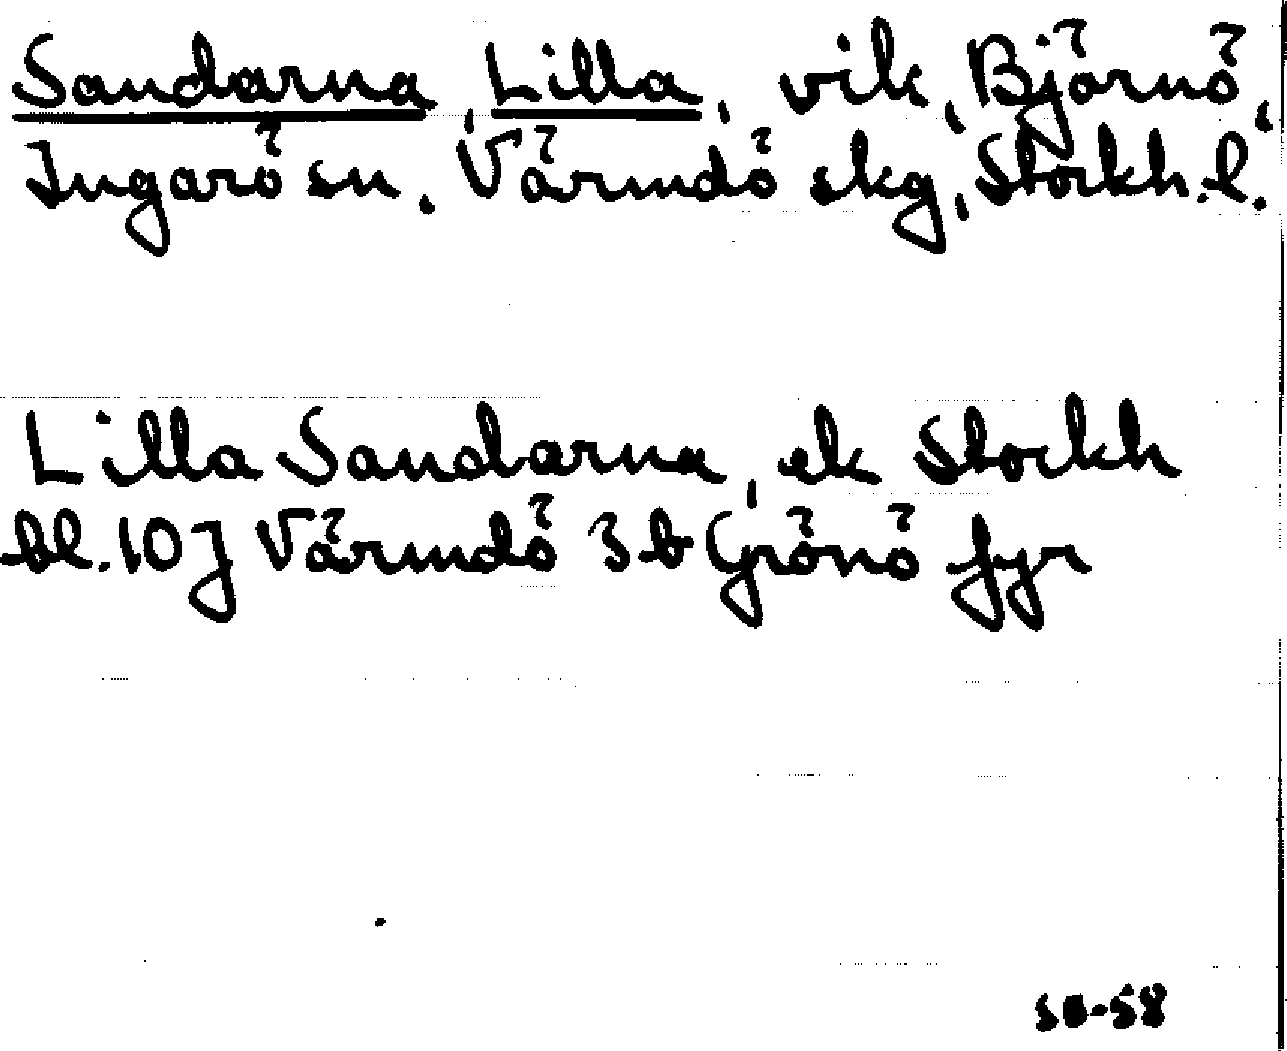 Sandarna, Lilla, vik, Björnö,
Ingarö sn, Värmdö skg, Stockh. l.
Lilla Sandarna, ek Stockh
bl. 10J Värmdö 3b Grönö fyr
SB-58